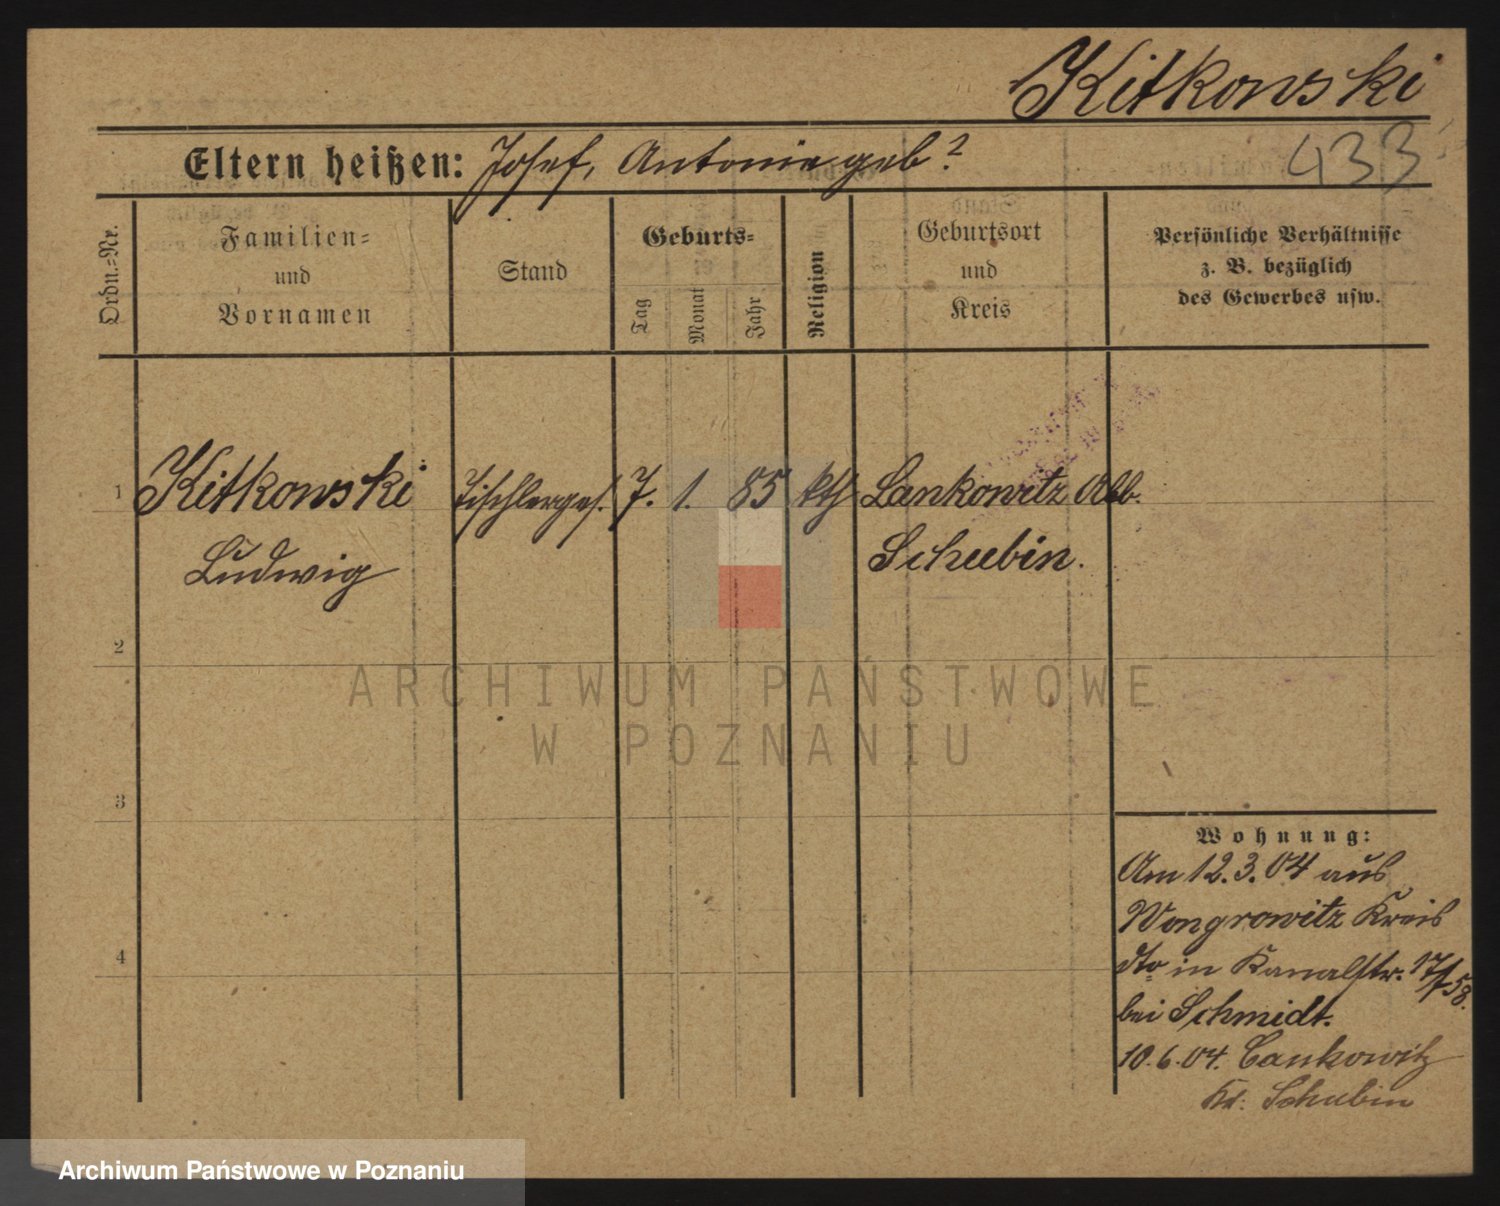 Kitkowski
Eltern heißen: Josef, Antonie geb?
433
Ordn.=Nr.
Familien=
und
Vornamen
Stand
Geburts=
Tag
Monat
Jahr
Religion
Geburtsort
und
Kreis
Persönliche Verhältnisse
z. B. bezüglich
des Gewerbes usw.
1 Kitkowski Tischlerges. 7. 1. 85 kth Lankowitz Abb.
Ludwig Schubin.
2
3
4
Wohnung:
Am 12.3.04 aus
Wongrowitz Kreis
dto in Kanalstr. 17/58.
bei Schmidt.
10.6.04. Lankowitz
Kr. Schubin
ARCHIWUM PAŃSTWOWE
W POZNANIU
Archiwum Państwowe w Poznaniu